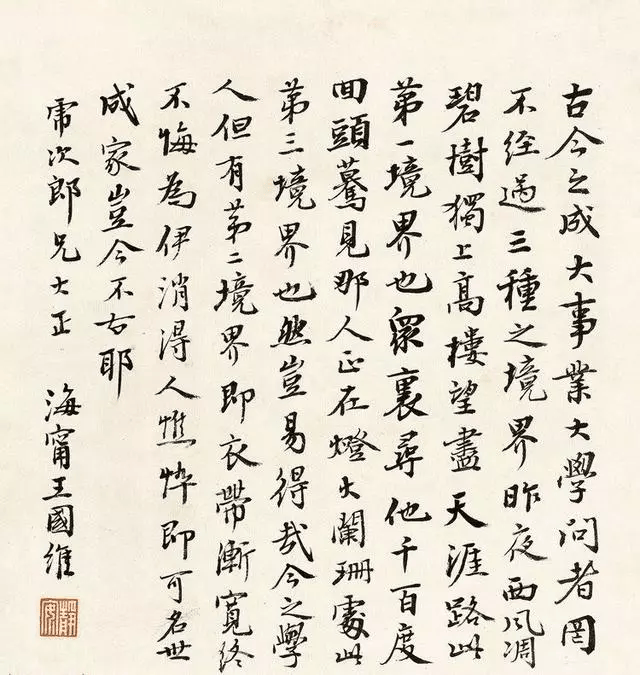 古今之成大事業大學问者罔
不经過三種之境界昨夜西风凋
碧樹獨上高樓望盡天涯路此
苐一境界也衆裏尋他千百度
回頭驀見那人正在燈火闌珊處此
苐三境界也然豈易得哉今之學
人但有苐二境界即衣帶漸寬终
不悔為伊消得人憔悴即可名世
成家豈今不古耶
虎次郎兄大正
海甯王國維
靜安